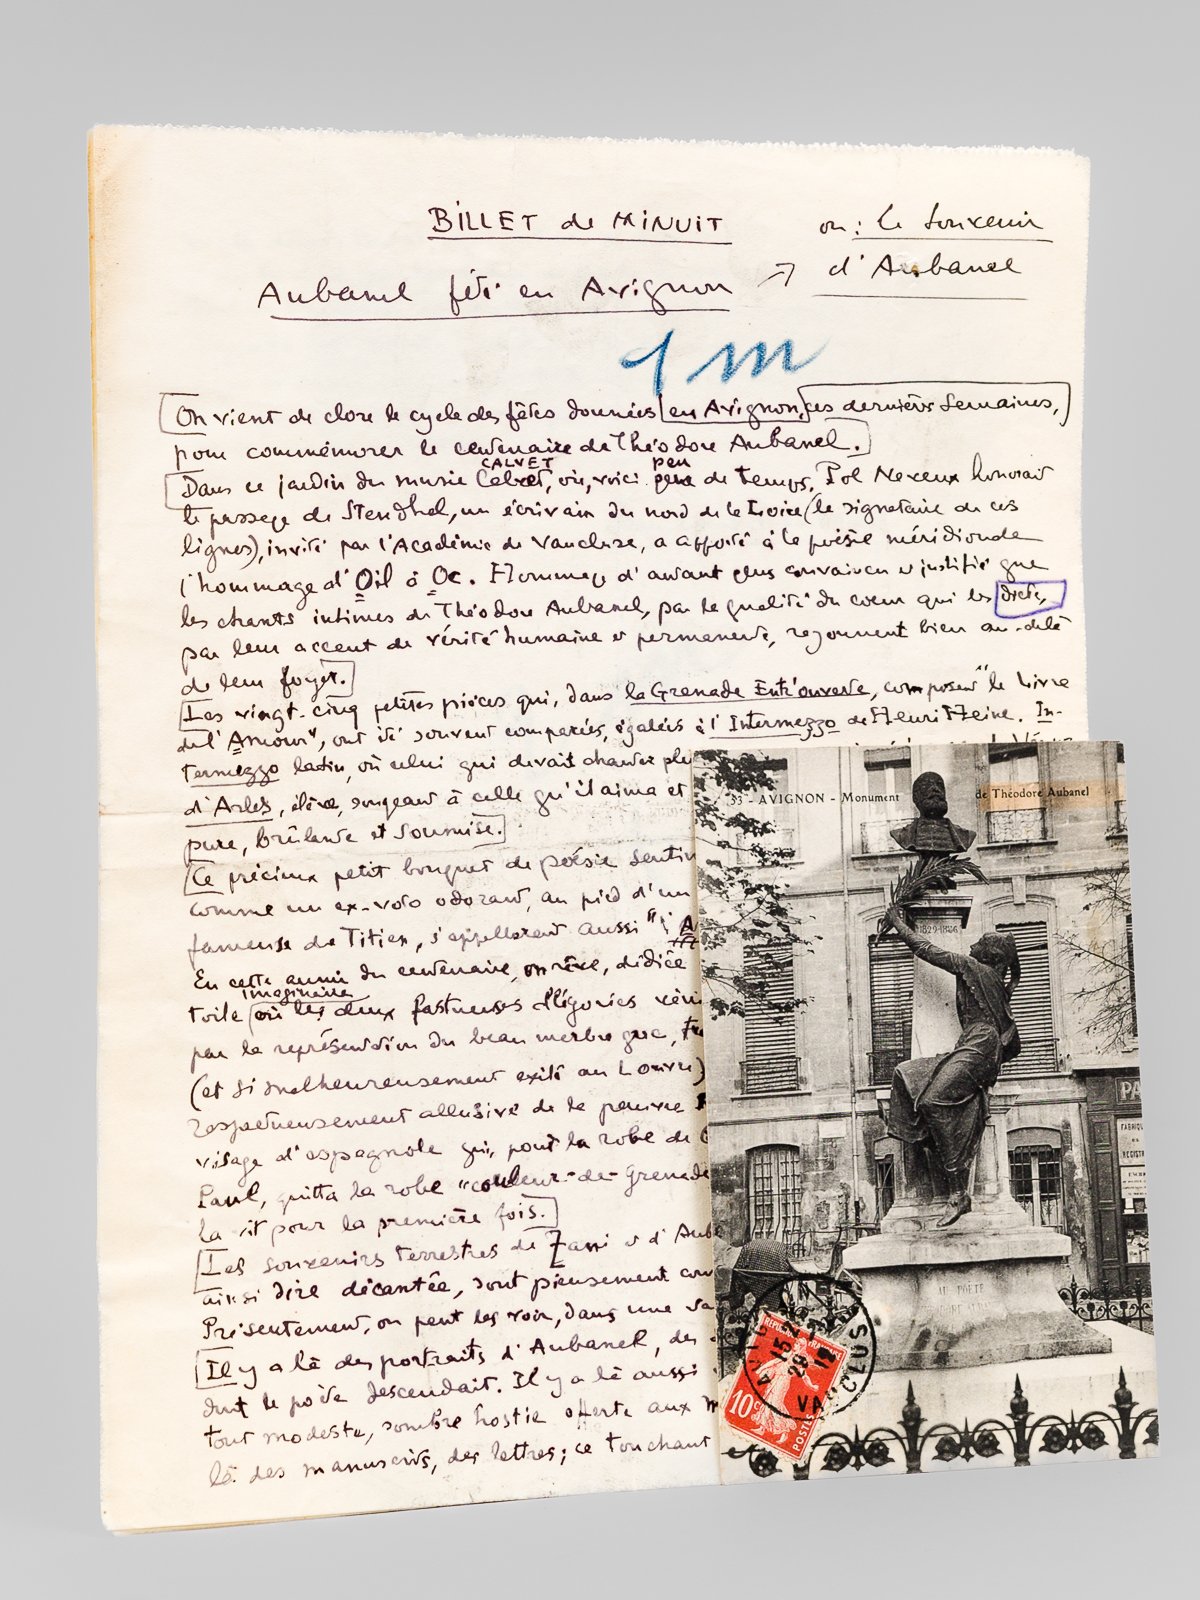 BILLET de MINUIT
ou : le souvenir
d'Aubanel
Aubanel fêté en Avignon
1 m
On vient de clore le cycle des fêtes données en Avignon, ces dernières semaines,
pour commémorer le centenaire de Théodore Aubanel.
CALVET peu
Dans ce jardin du musée où, voici de temps, Pol Neveux honorait
le passage de Stendhal, un écrivain du nord de la Loire (le signataire de ces
lignes), invité par l'Académie de Vaucluse, a apporté à la poésie méridionale
l'hommage d'Oil à Oc. Hommage d'autant plus convaincu et justifié que
les chants intimes de Théodore Aubanel, par la qualité du coeur qui les dicte,
par leur accent de vérité humaine et permanente, rayonnent bien au-delà
de leur foyer.
Les vingt-cinq petites pièces qui, dans la Grenade Entr'ouverte, composent "le Livre
de l'Amour", ont été souvent comparées, égalées à l'Intermezzo de Henri Heine. In-
termezzo latin, où celui qui devait chanter plu
d'Arles, élève, songeant à celle qu'il aima et
pure, brûlante et soumise.
Ce précieux petit bouquet de poésie sentim
comme un ex-voto odorant, au pied d'un
fameuse de Titien, s'appelleront aussi "l'A
En cette année du centenaire, on rêve, dédiée
imaginaire
toile où les deux fastueuses allégories
par la représentation du beau marbre grec,
(et si malheureusement exilé au Louvre)
respectueusement allusive de la pauvre
visage d'espagnole qui, pour la robe de
Paul, quitta la robe "couleur-de-Grenade
la vit pour la première fois.
Les souvenirs terrestres de Zani et d'Auba
ainsi dire décantée, sont pieusement con
Présentement, on peut les voir, dans une
Il y a là des portraits d'Aubanel, des
dont le poète descendait. Il y a là aussi
tout modeste, sombre hostie offerte aux
là des manuscrits, des lettres; ce touchant
33 - AVIGNON - Monument de Théodore Aubanel
1829-1886
PA
FABRIQUE
DE
REGISTR
AU POÈTE
RÉPUBLIQUE FRANÇAISE
10c
POSTES
15
29
12
VAUCLUSE